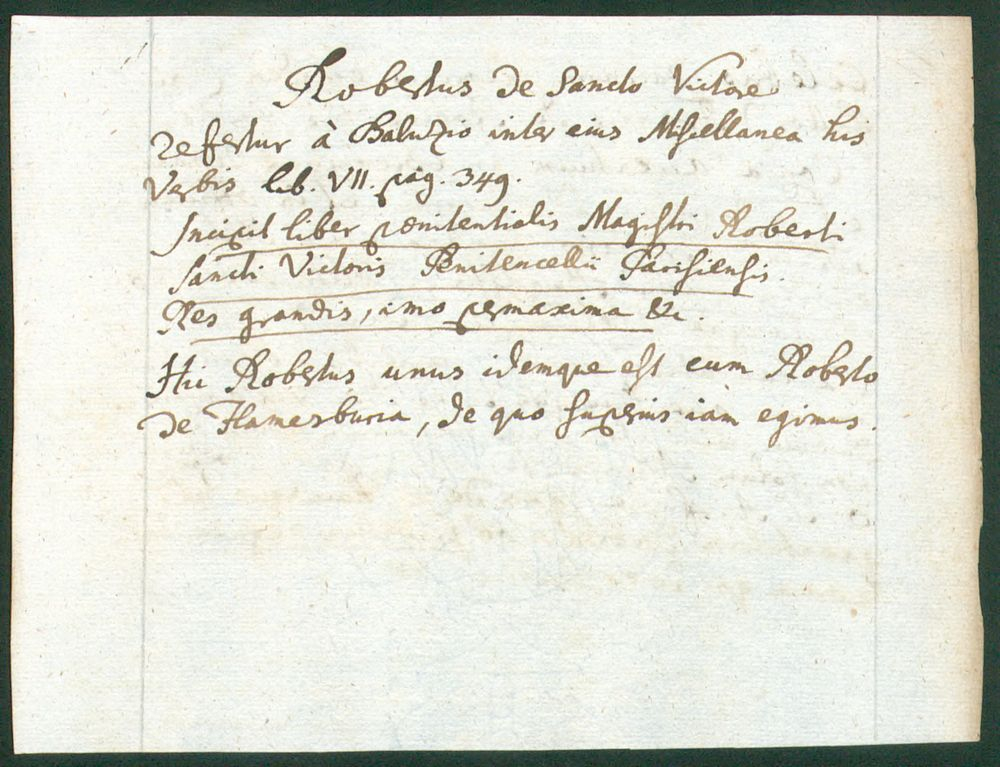 Robertus de Sancto Victore
refertur à Baluzio inter eius Miscellanea his
Verbis lib. VII. pag. 349.
Incipit liber pœnitentialis Magistri Roberti
Sancti Victoris Penitencellii Parisiensis.
Res grandis, imo permaxima &c.
Hic Robertus unus idemque est cum Roberto
de Flamesburia, de quo superius iam egimus.